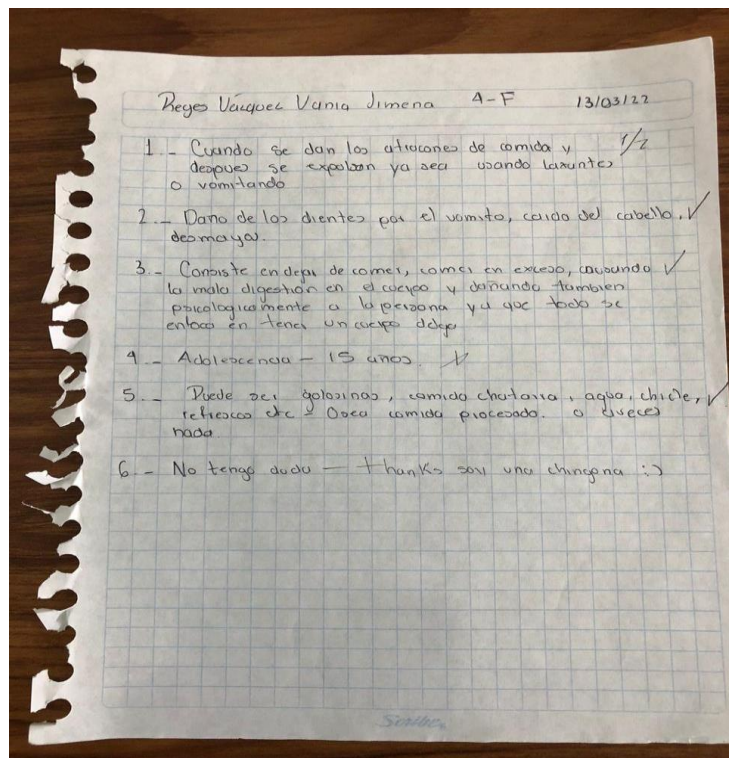 Reyes Vázquez Vania Jimena 4-F 13/03/22
1.- Cuando se dan los atracones de comida y 1/2
despues se expulsan ya sea usando laxantes
o vomitando
2.- Daño de los dientes por el vomito, caida del cabello,
desmayo.
3.- Consiste en dejar de comer, comer en exceso, causando
la mala digestión en el cuerpo y dañando tambien
psicologicamente a la persona ya que todo se
enfoca en tener un cuerpo
4.- Adolescencia - 15 años.
5.- Puede ser golosinas, comida chatarra, agua, chicle,
refresco etc = Osea comida procesada. o aveces
nada
6.- No tengo duda - thanks soy una chingona :)